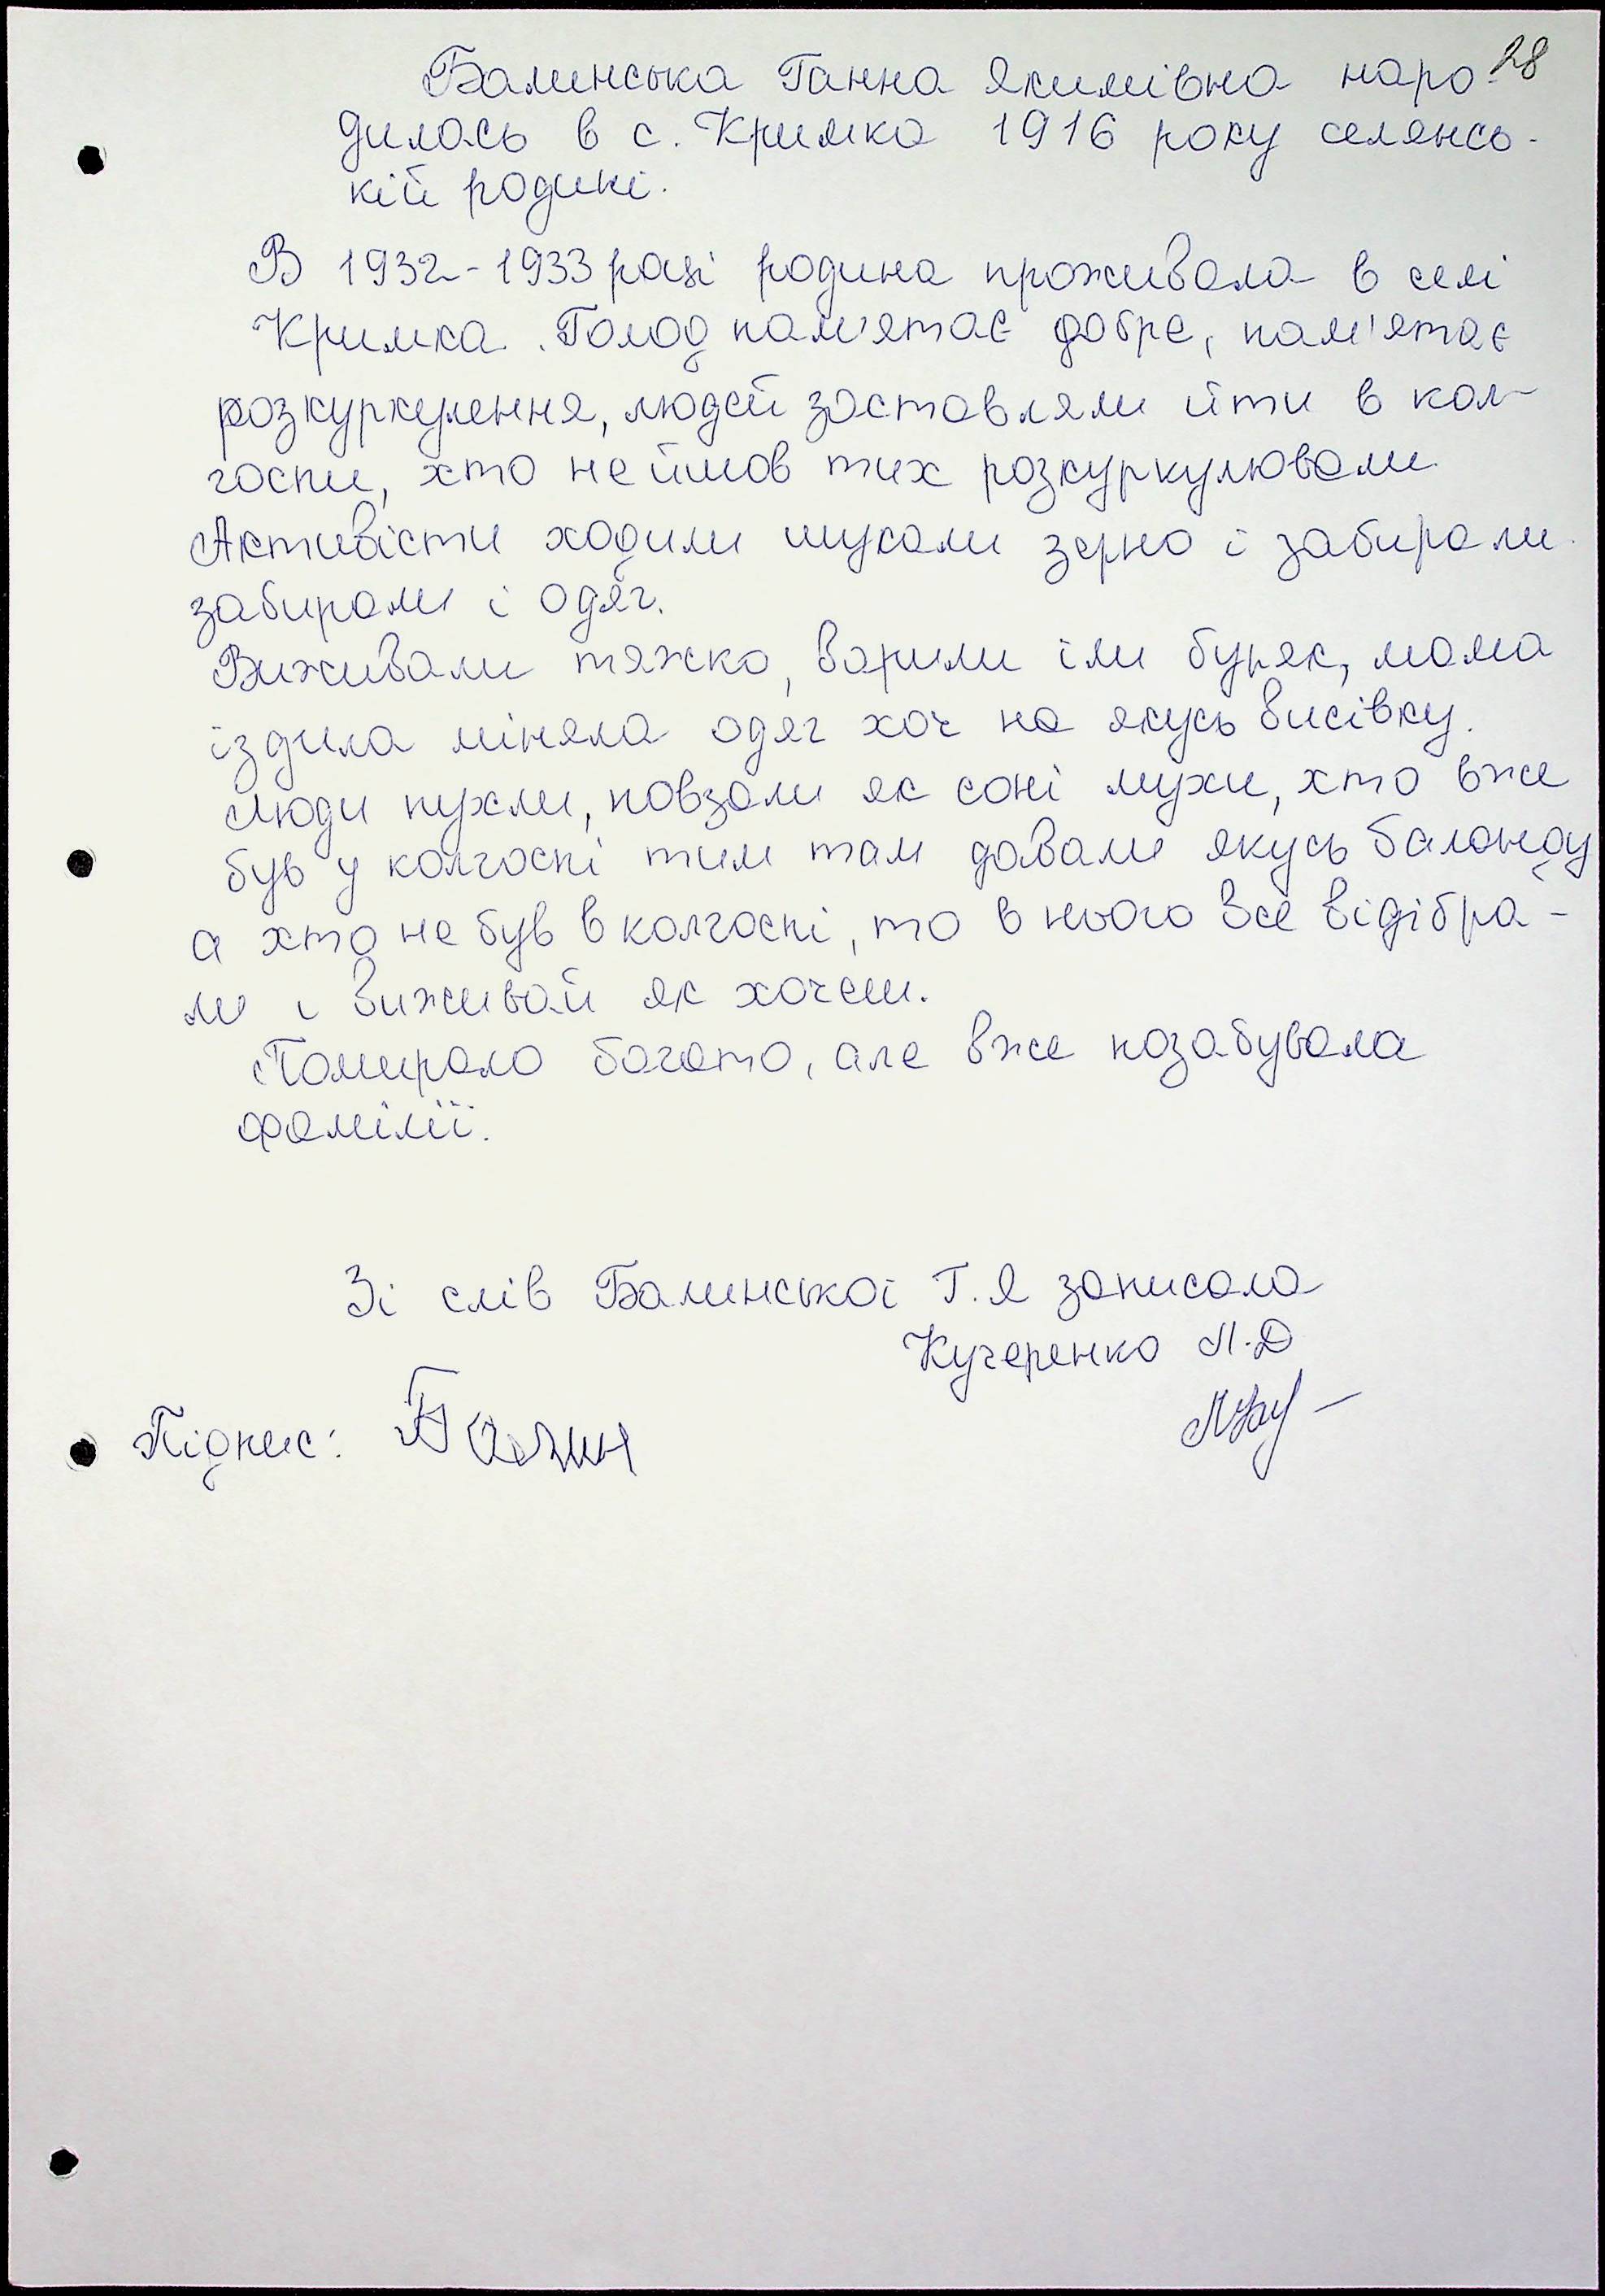 28
Балинська Ганна Якимівна наро-
дилась в с. Кримка 1916 року селянсь-
кій родині.
В 1932-1933 році родина проживала в селі
Кримка. Голод пам'ятає добре, пам'ятає
розкуркулення, людей заставляли йти в кол-
госпи, хто не йшов тих розкуркулювали
Активісти ходили шукали зерно і забирали
забирали і одяг.
Виживали тяжко, варили їли буряк, мама
їздила міняла одяг хоч на якусь висівку.
Люди пухли, повзали як соні мухи, хто вже
був у колгоспі тим там давали якусь баланду
а хто не був в колгоспі, то в нього все відібра-
ли і виживай як хочеш.
Помирало багато, але вже позабувала
фамілії.
Зі слів Балинської Г.Я записала
Кучеренко Л.Д
Підпис: Балин